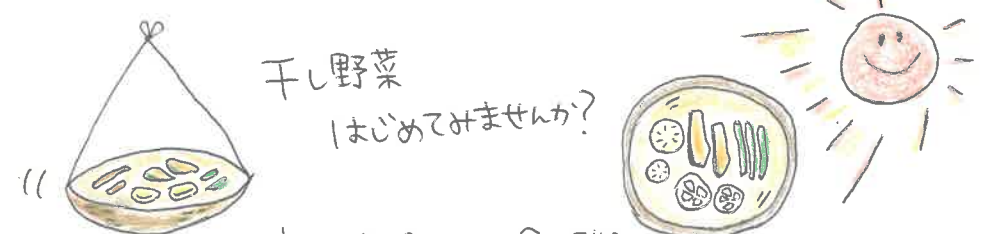 干し野菜
はじめてみませんか?